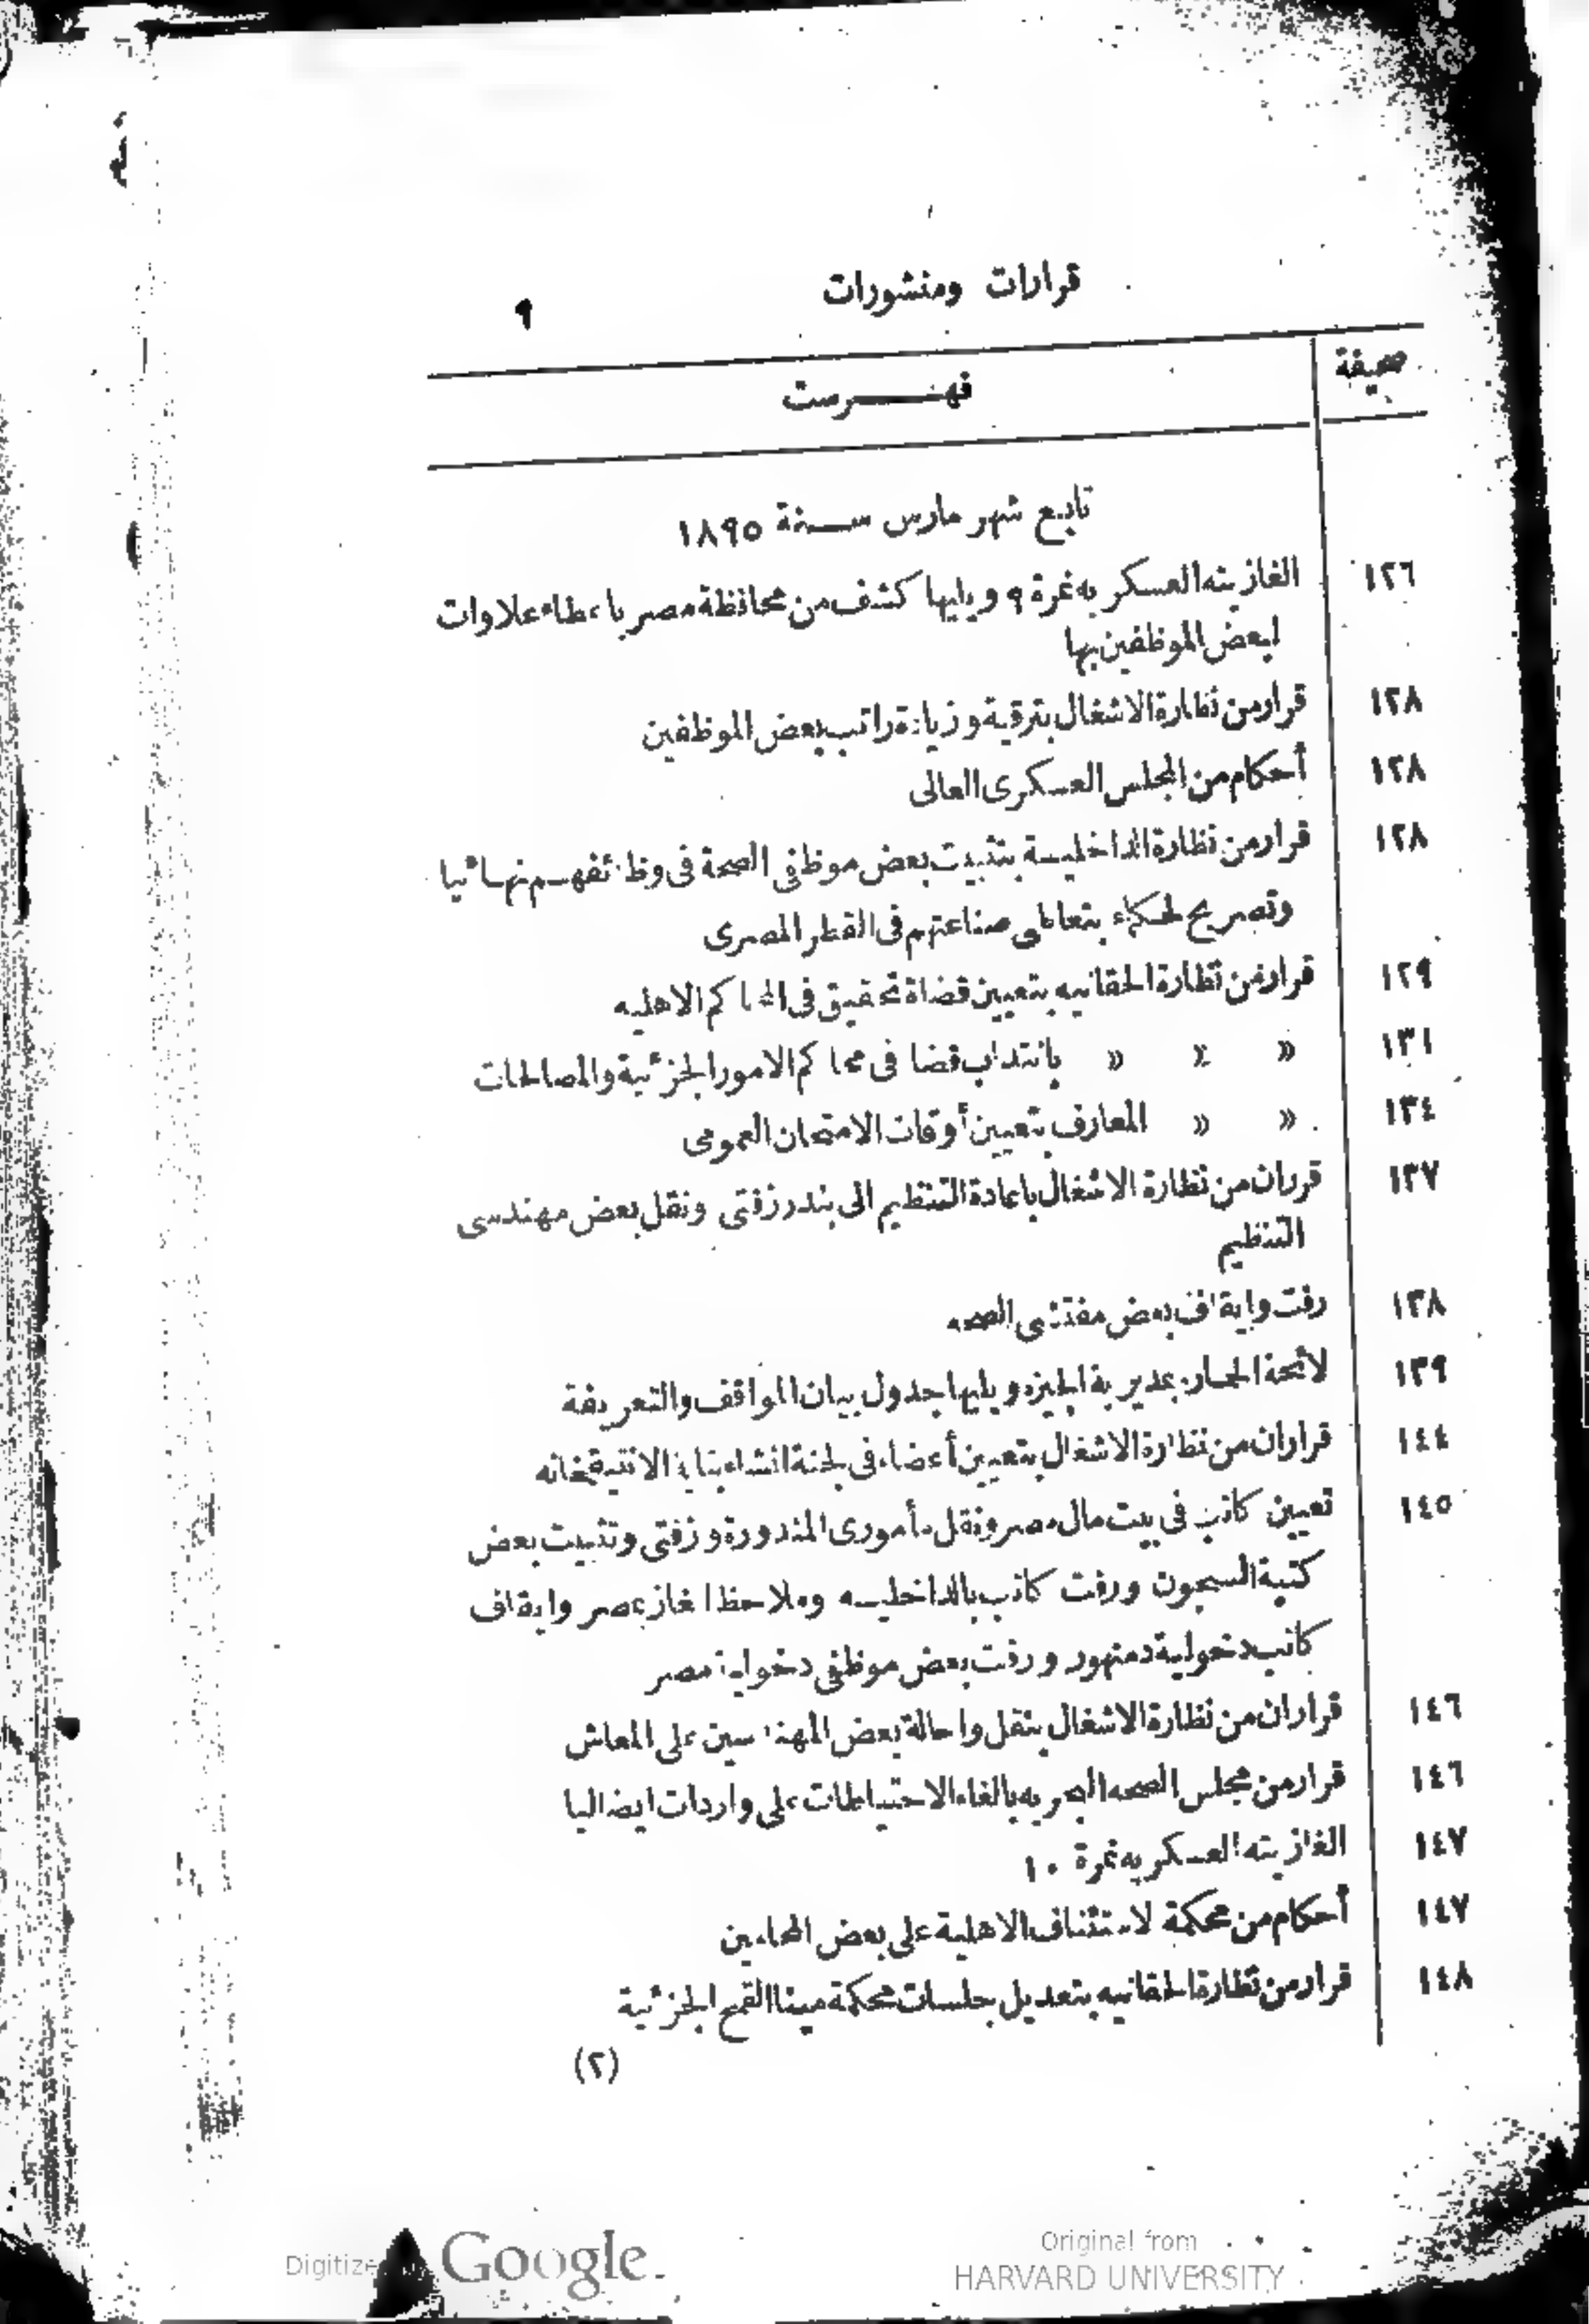 قرارات ومنشورات ٩
صحيفة فهرست
تابع شهر مارس سنة ١٨٩٥
١٢٦ الغازيته العسكريه نمرة ٩ ويليها كشف من محافظة مصر باعطاء علاوات
لبعض الموظفين بها
١٢٨ قرار من نظارة الاشغال بترقية وزيادة راتب بعض الموظفين
١٢٨ أحكام من المجلس العسكرى العالى
١٢٨ قرار من نظارة الداخلية بتثبيت بعض موظفى الصحة فى وظائفهم نهائيا
وتصريح لحكماء بتعاطى صناعتهم فى القطر المصرى
١٢٩ قرار من نظارة الحقانيه بتعيين قضاة تحقيق فى المحاكم الاهليه
١٣١ » » » بانتداب قضا فى محاكم الامور الجزئية والمصالحات
١٣٤ » » المعارف بتعيين أوقات الامتحان العمومى
١٣٧ قرران من نظارة الاشغال باعادة التنظيم الى بندر زفتى ونقل بعض مهندسى
التنظيم
١٣٨ رفت وايقاف بعض مفتشى الصحه
١٣٩ لائحة الحمارة بمديرية الجيزه ويليها جدول بيان المواقف والتعريفة
١٤٤ قراران من نظارة الاشغال بتعيين أعضاء فى لجنة انشاء بناية الانتيقخانه
١٤٥ تعيين كاتب فى بيت مال مصر ونقل مأمورى المندورة وزفتى وتثبيت بعض
كتبة السجون ورفت كاتب بالداخليه وملاحظ الغاز بمصر وايقاف
كاتب دخولية دمنهور ورفت بعض موظفى دخولية مصر
١٤٦ قراران من نظارة الاشغال بنقل واحالة بعض المهندسين على المعاش
١٤٦ قرار من مجلس الصحه البحريه بالغاء الاحتياطات على واردات ايضاليا
١٤٧ الغازيته العسكريه نمرة ١٠
١٤٧ أحكام من محكمة لاستئناف الاهلية على بعض المحامين
١٤٨ قرار من نظارة الحقانيه بتعديل جلسات محكمة مينا القمح الجزئية
(٢)
Google
Original from
HARVARD UNIVERSITY